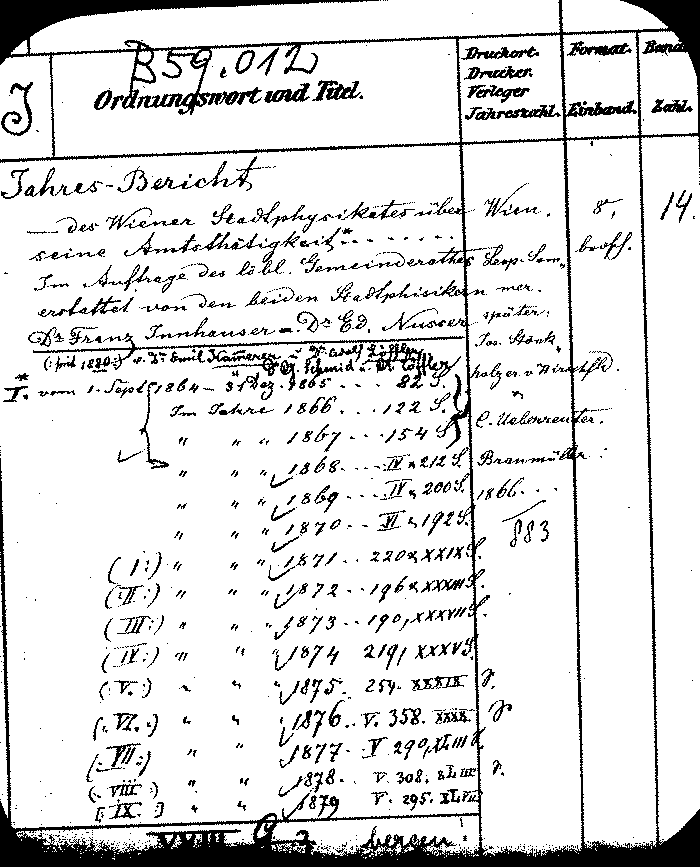 B59.012
J
Ordnungswort und Titel.
Druckort.
Drucker.
Verleger
Jahreszahl.
Format.
Einband.
Bände
Zahl.
Jahres-Bericht
— des Wiener Stadtphysikates über Wien. 8°, 14.
seine Amtsthätigkeit* . . . . . . brosch.
Im Auftrage des löbl. Gemeinderathes Leop. Som„
erstattet von den beiden Stadtphisikern mer.
Dr Franz Innhauser = Dr Ed. Nusser später:
(: seit 1880:) v. Dr Emil Kammerer Jos. Stöck„
Schmid u. holzer v. Hirschfld.
* I. vom 1. Sept. 1864 – 31 Dez. 1865 . . . 82 S.
Im Jahre 1866 . . . 122 S. C. Ueberreuter.
" " " 1867 - - - 154 S.
" " " 1868 - - - IV u 212 S. Braumüller :
" " " 1869 - - - IV u 200 S. 1866 . . .
" " " 1870 - - VI u 192 S. 883
(I:) " " " 1871 - - 220 u XXIX S.
(:II:) " " " 1872 - - 196 u XXXIII S.
(III:) " " " 1873 - - 190, XXXVII S.
(IV:) " " " 1874 219, XXXV S.
(:V:) " " " 1875. 254. XXXIX S.
(:VI.:) " " " 1876. V. 358. XXXX. S
(:VII:) " " " 1877 - V 290, XLIII S.
(:VIII:) " " " 1878 - V. 308. XLIII S.
(:IX:) " " " 1879 V. 295. XLVII